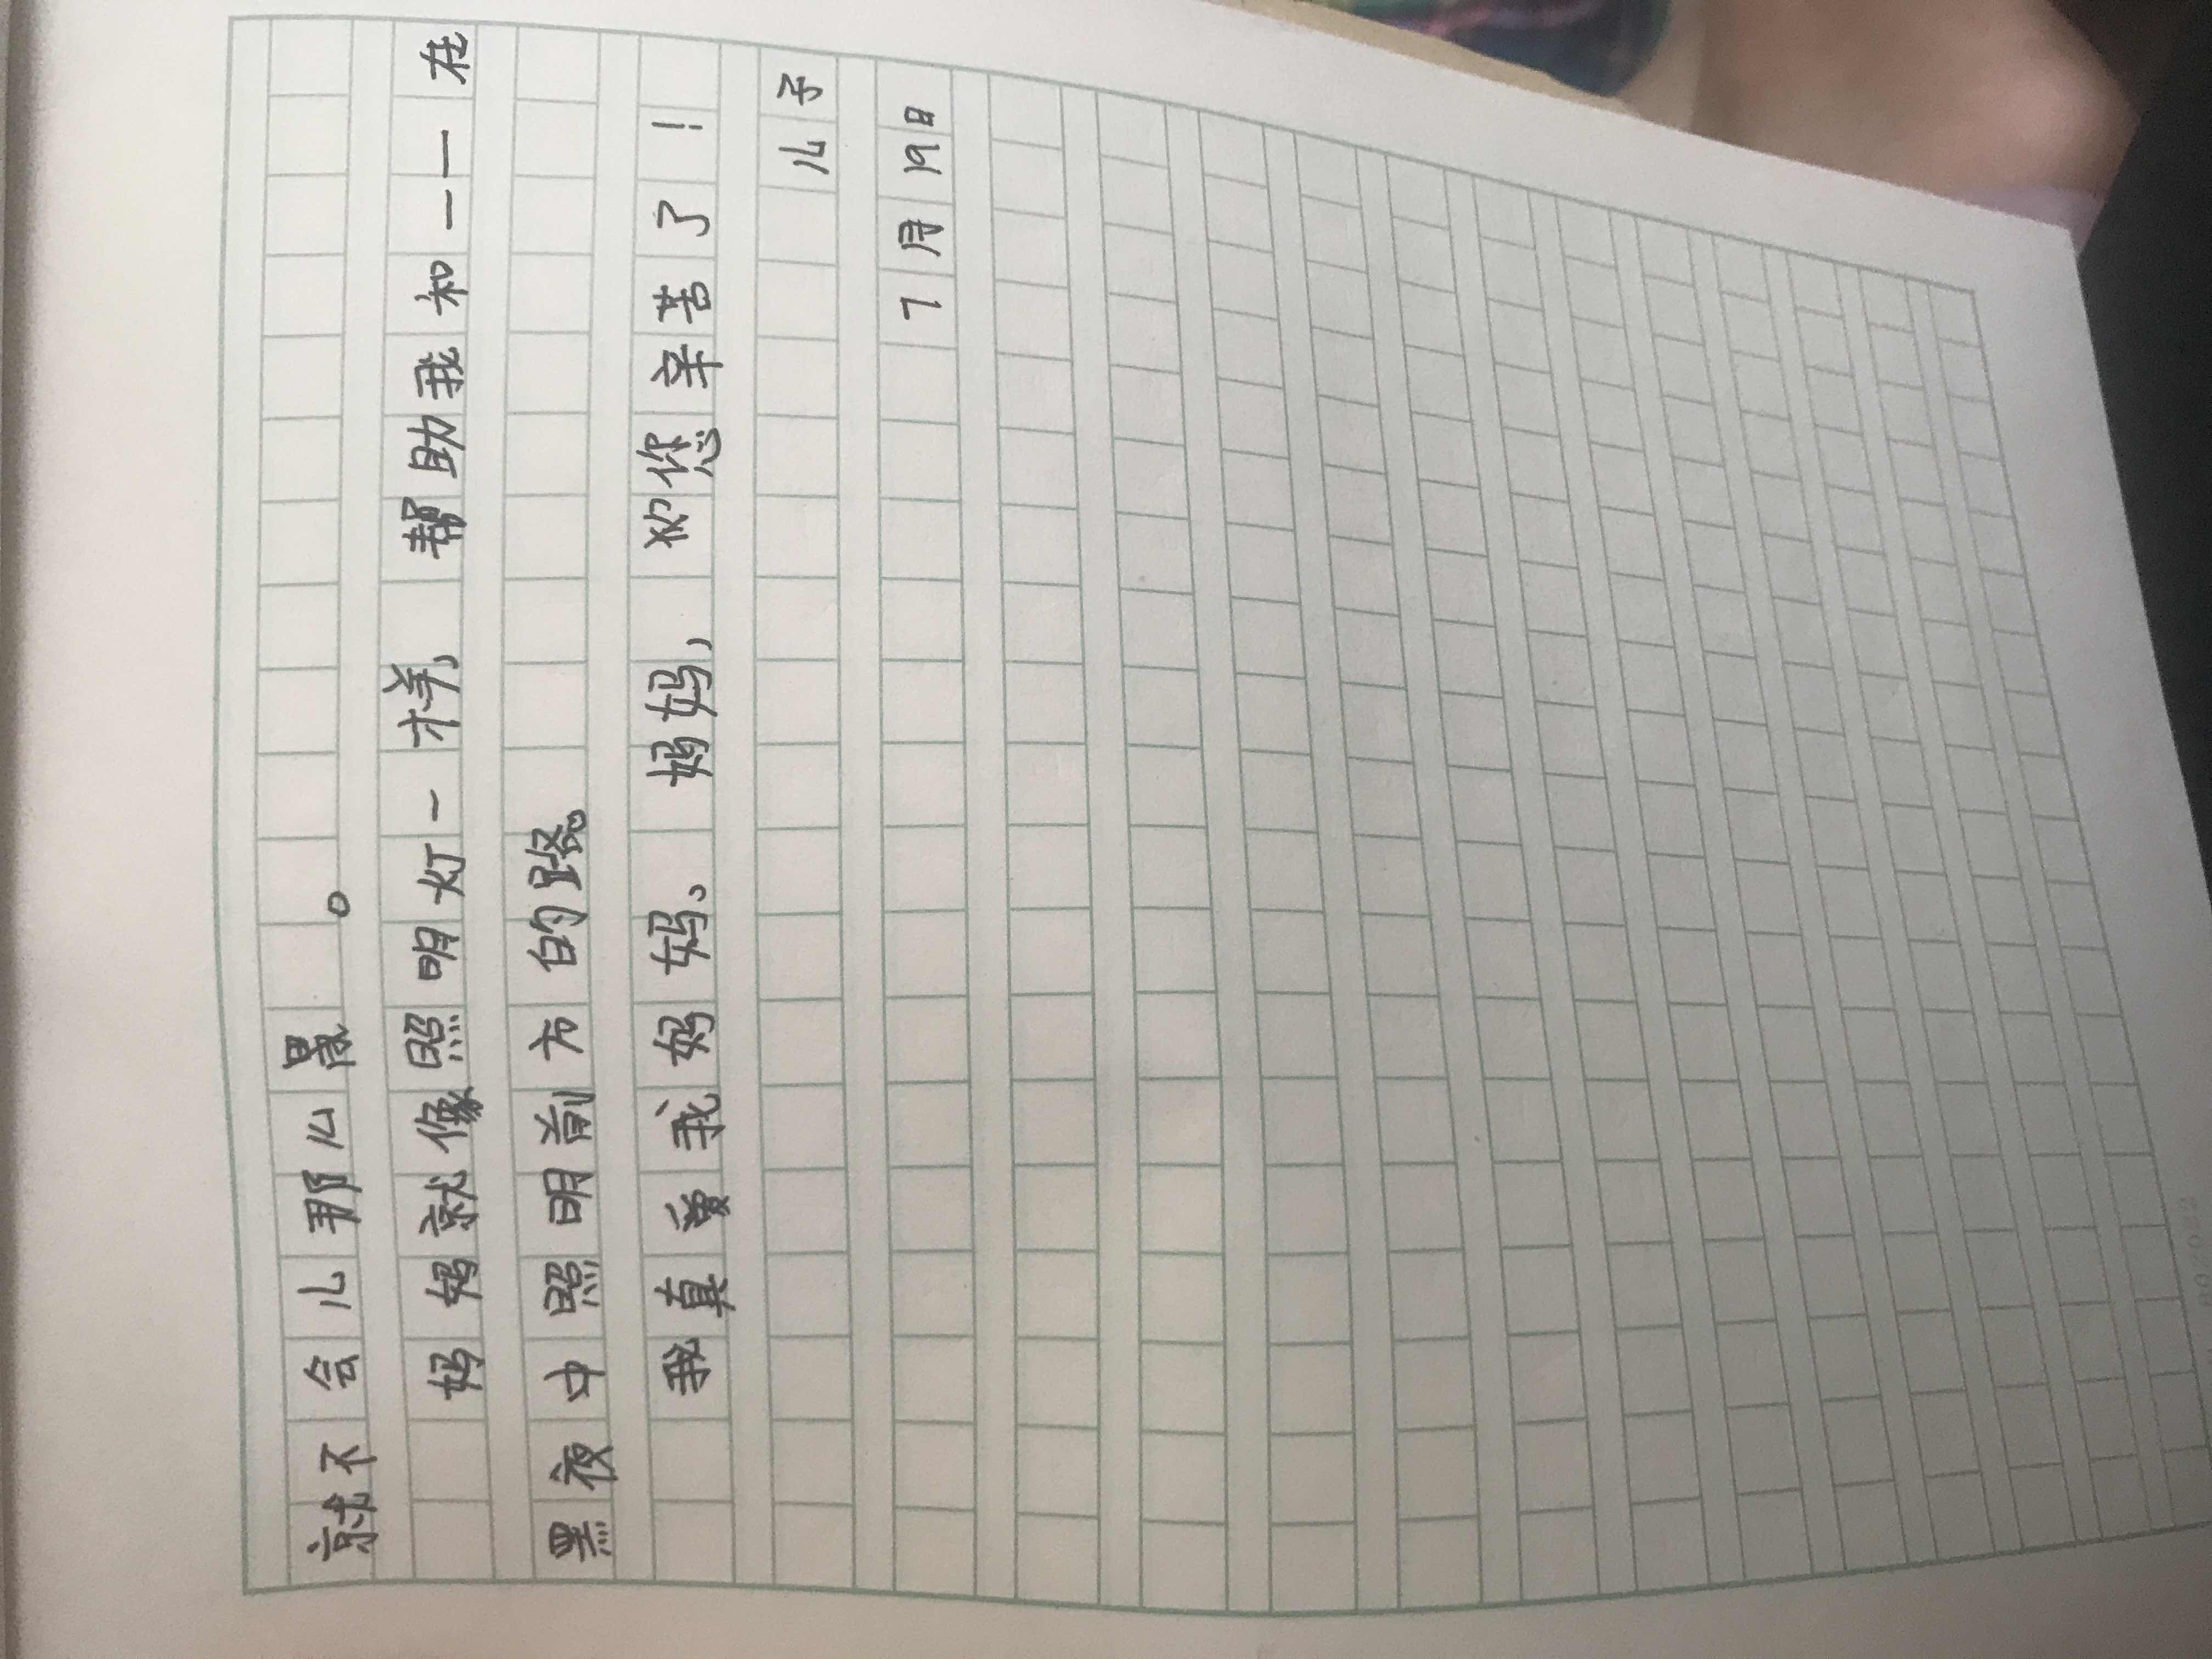 就不会儿那么。
妈妈就像照明灯一样,帮助我和——在
黑夜中照明前方的路。
我真爱我妈妈、妈妈,您辛苦了!
儿子
7月19日